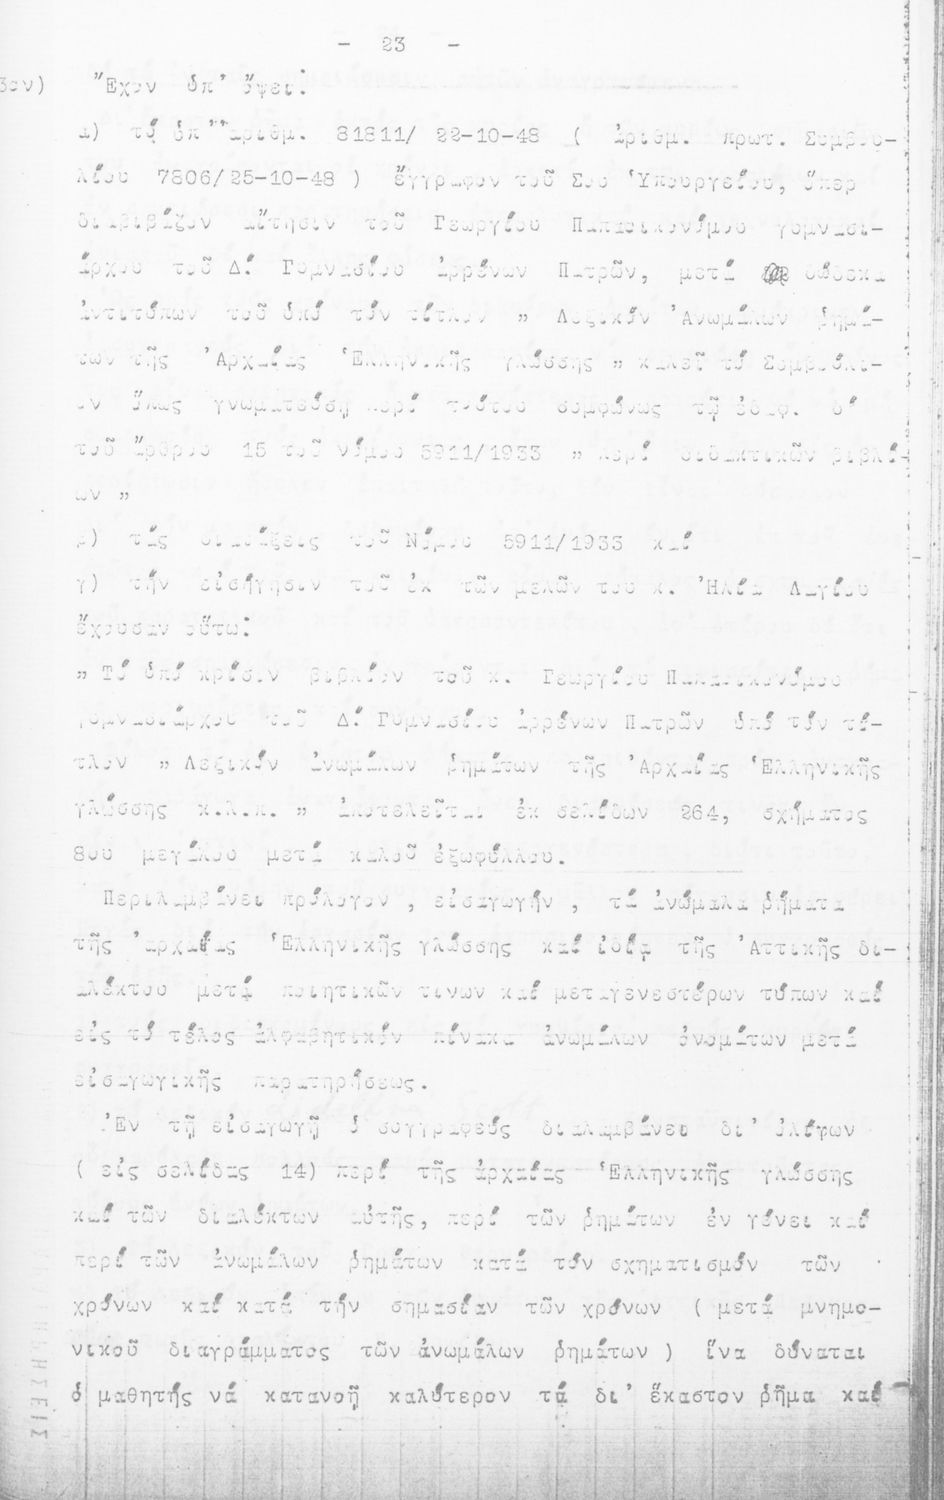 - 23 -
3ον) Ἔχον ὑπ' ὄψει:
α) τό ὑπ' ἀριθμ. 81811/ 22-10-48 ( ἀριθμ. πρωτ. Συμβου-
λίου 7806/25-10-48 ) ἔγγραφον τοῦ Σου Ὑπουργείου, ὅπερ
διαβιβάζον αἴτησιν τοῦ Γεωργίου Παπαοικονόμου γυμνασι-
άρχου τοῦ Δ! Γυμνασίου ἀρρένων Πατρῶν, μετά δώδεκα
ἀντιτύπων τοῦ ὑπό τόν τίτλον " Λεξικόν Ἀνωμάλων ρημά-
των τῆς Ἀρχαίας Ἑλληνικῆς γλώσσης " καλεῖ τό Συμβούλι-
ον ὅπως γνωματεύσῃ περί τούτου συμφώνως τῷ ἐδαφ. δ'
τοῦ ἄρθρου 15 τοῦ νόμου 5911/1933 " περί διδακτικῶν βιβλί-
ων "
β) τάς διατάξεις τοῦ Νόμου 5911/1933 καί
γ) τήν εἰσήγησιν τοῦ ἐκ τῶν μελῶν του κ. Ἠλία Λαγίου
ἔχουσαν οὕτω:
" Τό ὑπό κρίσιν βιβλίον τοῦ κ. Γεωργίου Παπαοικονόμου
γυμνασιάρχου τοῦ Δ! Γυμνασίου ἀρρένων Πατρῶν ὑπό τόν τί-
τλον " Λεξικόν ἀνωμάλων ῥημάτων τῆς Ἀρχαίας Ἑλληνικῆς
γλώσσης κ.λ.π. " ἀποτελεῖται ἐκ σελίδων 264, σχήματος
8ου μεγάλου μετά καλοῦ ἐξωφύλλου.
Περιλαμβάνει πρόλογον , εἰσαγωγήν , τά ἀνώμαλα ῥήματα
τῆς ἀρχαίας Ἑλληνικῆς γλώσσης καί ἰδίᾳ τῆς Ἀττικῆς δι-
αλέκτου μετά ποιητικῶν τινων καί μεταγενεστέρων τύπων καί
εἰς τό τέλος ἀλφαβητικόν πίνακα ἀνωμάλων ὀνομάτων μετά
εἰσαγωγικῆς παρατηρήσεως.
Ἐν τῇ εἰσαγωγῇ ὁ συγγραφεύς διαλαμβάνει δι' ὀλίγων
( εἰς σελίδας 14) περί τῆς ἀρχαίας Ἑλληνικῆς γλώσσης
καί τῶν διαλέκτων αὐτῆς, περί τῶν ῥημάτων ἐν γένει καί
περί τῶν ἀνωμάλων ῥημάτων κατά τόν σχηματισμόν τῶν
χρόνων καί κατά τήν σημασίαν τῶν χρόνων ( μετά μνημο-
νικοῦ διαγράμματος τῶν ἀνωμάλων ῥημάτων ) ἵνα δύναται
ὁ μαθητής νά κατανοῇ καλύτερον τά δι' ἕκαστον ῥῆμα καί